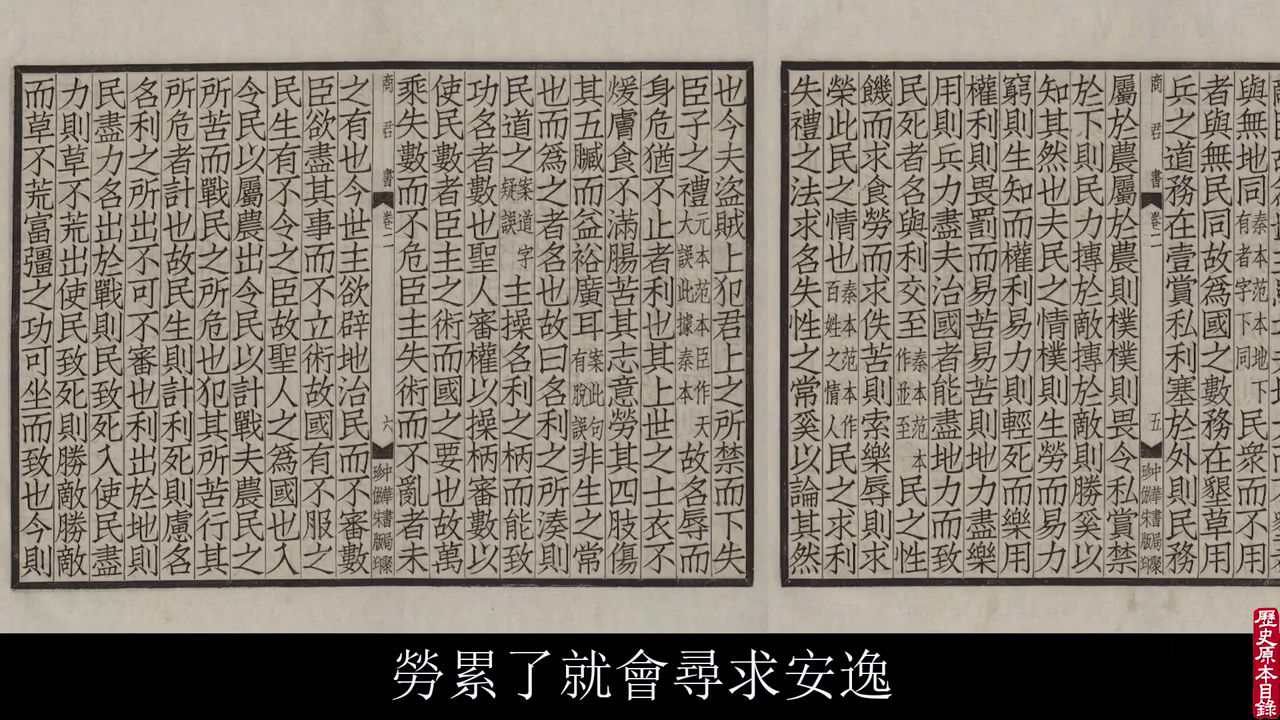 與無地同秦本范本地下有者字下同民衆而不用
者與無民同故爲國之數務在墾草用
兵之道務在壹賞私利塞於外則民務
商君書 卷二 五 中華書局聚珍倣宋版印
屬於農屬於農則樸樸則畏令私賞禁
於下則民力摶於敵摶於敵則勝奚以
知其然也夫民之情樸則生勞而易力
窮則生知而權利易力則輕死而樂用
權利則畏罰而易苦易苦則地力盡樂
用則兵力盡夫治國者能盡地力而致
民死者名與利交至秦本范本作並至民之性
饑而求食勞而求佚苦則索樂辱則求
榮此民之情也秦本范本作百姓之情人民之求利
失禮之法求名失性之常奚以論其然
也今夫盜賊上犯君上之所禁而下失
臣子之禮元本范本臣作天大誤此據秦本故名辱而
身危猶不止者利也其上世之士衣不
煖膚食不滿腸苦其志意勞其四肢傷
其五臟而益裕廣耳案此句有脫誤非生之常
也而爲之者名也故曰名利之所湊則
民道之案道字疑誤主操名利之柄而能致
功名者數也聖人審權以操柄審數以
使民數者臣主之術而國之要也故萬
乘失數而不危臣主失術而不亂者未
商君書 卷二 六 中華書局聚珍倣宋版印
之有也今世主欲辟地治民而不審數
臣欲盡其事而不立術故國有不服之
民生有不令之臣故聖人之爲國也入
令民以屬農出令民以計戰夫農民之
所苦而戰民之所危也犯其所苦行其
所危者計也故民生則計利死則慮名
名利之所出不可不審也利出於地則
民盡力名出於戰則民致死入使民盡
力則草不荒出使民致死則勝敵勝敵
而草不荒富疆之功可坐而致也今則
勞累了就會尋求安逸
歷史原本目錄